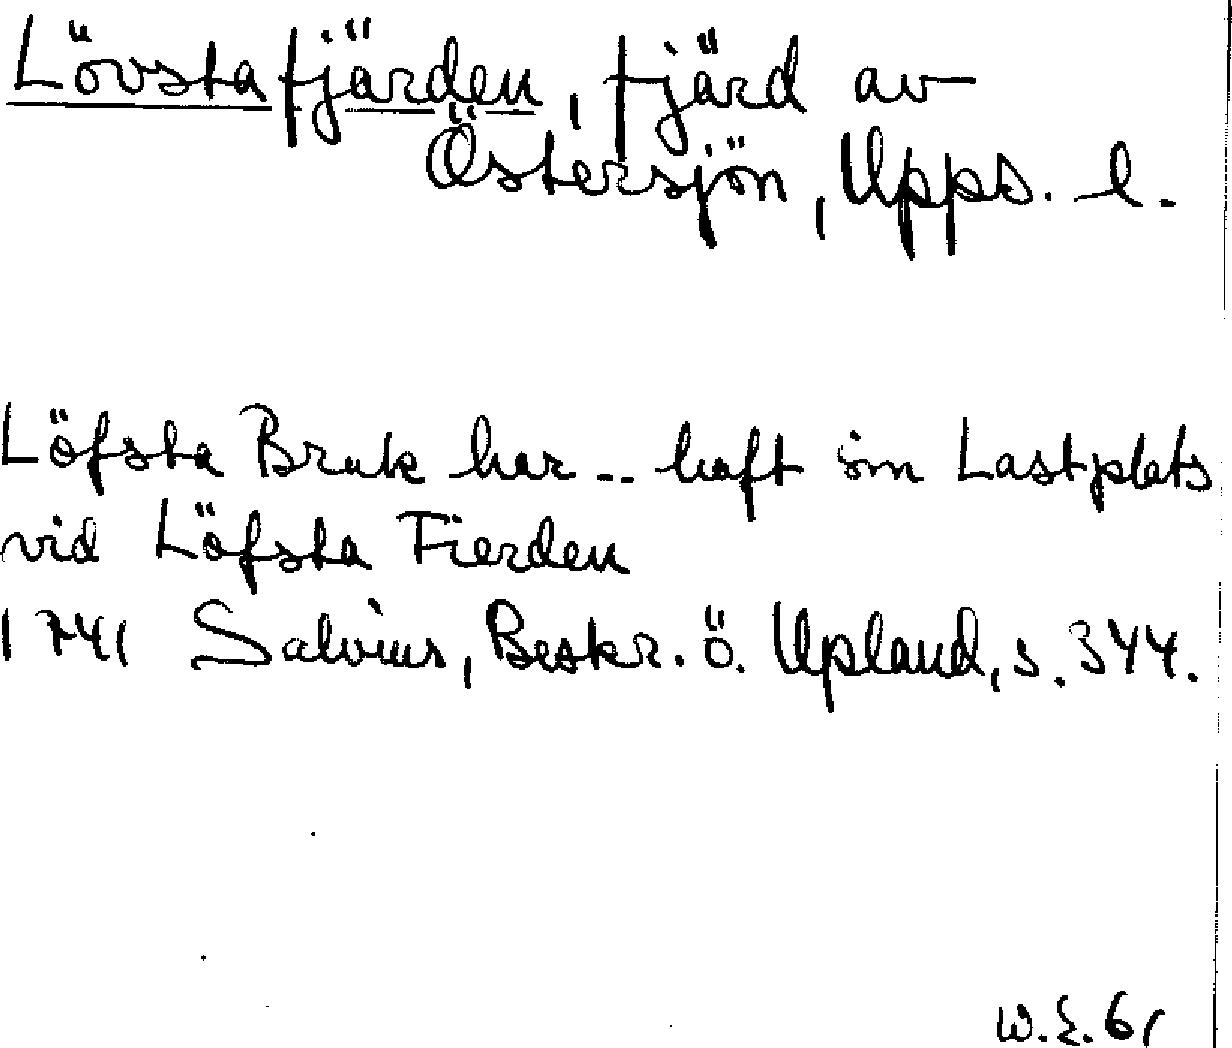 Lövstafjärden, fjärd av
Östersjön, Upps. l.
Löfsta Bruk har -- haft sin Lastplats
vid Löfsta Fierden
1741 Salvius, Beskr. ö. Upland, s. 344.
W.E. 61